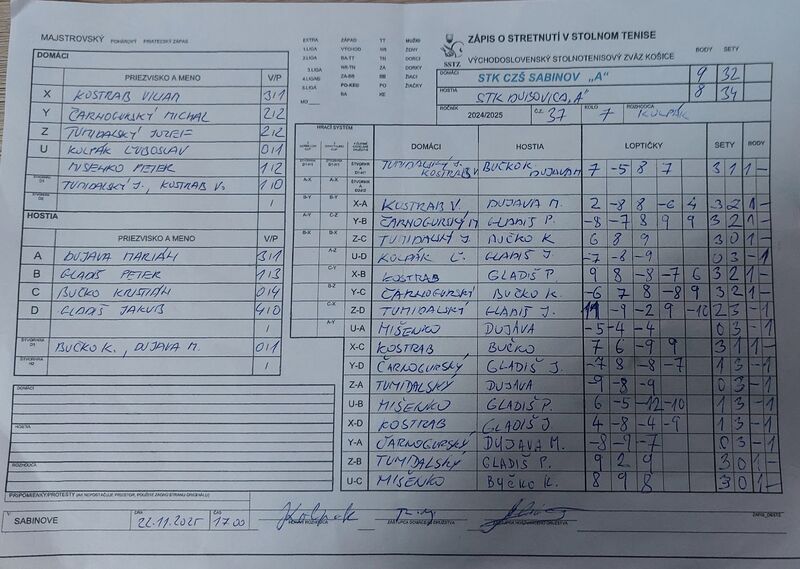 MAJSTROVSKÝ POHÁROVÝ PRIATEĽSKÝ ZÁPAS
DOMÁCI
PRIEZVISKO A MENO V/P
X KOSTRAB VILIAM 3/1
Y ČARNOGURSKÝ MICHAL 2/2
Z TUMIDALSKÝ JOZEF 2/2
U KOLPÁK ĽUBOSLAV 0/1
MIŠENKO PETER 1/2
TUMIDALSKÝ J., KOSTRAB V. 1/0
HOSTIA
PRIEZVISKO A MENO V/P
A DUJAVA MARIÁN 3/1
B GLADIŠ PETER 1/3
C BUČKO KRISTIÁN 0/4
D GLADIŠ JAKUB 4/0
BUČKO K., DUJAVA M. 0/1
DOMÁCI
HOSTIA
ROZHODCA
EXTRA ZÁPAD TT MUŽI
1.LIGA VÝCHOD NR ŽENY
2.LIGA BA-TT TN DORCI
3.LIGA NR-TN ZA DORKY
4.LIGA ZA-BB BB ŽIACI
5.LIGA PO-KE PO ŽIAČKY
BA KE
SSTZ
ZÁPIS O STRETNUTÍ V STOLNOM TENISE
VÝCHODOSLOVENSKÝ STOLNOTENISOVÝ ZVÄZ KOŠICE BODY SETY
DOMÁCI STK CZŠ SABINOV „A" 9 32
HOSTIA STK DUBOVICA „A" 8 34
ROČNÍK 2024/2025 Č.Z. 37 KOLO 7 ROZHODCA KOLPÁK
HRACÍ SYSTÉM DOMÁCI HOSTIA LOPTIČKY SETY BODY
TUMIDALSKÝ J. KOSTRAB V. BUČKO K. DUJAVA M. 7 -5 8 7 3 1 1 -
X-A KOSTRAB V. DUJAVA M. 2 -8 8 -6 4 3 2 1 -
Y-B ČARNOGURSKÝ M GLADIŠ P. -8 -7 8 9 9 3 2 1 -
Z-C TUMIDALSKÝ J. BUČKO K 6 8 9 3 0 1 -
U-D KOLPÁK Ľ. GLADIŠ J -7 -8 -9 0 3 - 1
X-B KOSTRAB GLADIŠ P. 9 8 -8 -7 6 3 2 1 -
Y-C ČARNOGURSKÝ BUČKO K. -6 7 8 -8 9 3 2 1 -
Z-D TUMIDALSKÝ GLADIŠ J. 11 -9 -2 9 -10 2 3 - 1
U-A MIŠENKO DUJAVA -5 -4 -4 0 3 - 1
X-C KOSTRAB BUČKO 7 6 -9 9 3 1 1 -
Y-D ČARNOGURSKÝ GLADIŠ J. -7 8 -8 -7 1 3 - 1
Z-A TUMIDALSKÝ DUJAVA -9 -8 -9 0 3 - 1
U-B MIŠENKO GLADIŠ P. 6 -5 -12 -10 1 3 - 1
X-D KOSTRAB GLADIŠ J 4 -8 -4 -9 1 3 - 1
Y-A ČARNOGURSKÝ DUJAVA M. -8 -9 -7 0 3 - 1
Z-B TUMIDALSKÝ GLADIŠ P. 9 2 9 3 0 1 -
U-C MIŠENKO BUČKO K. 8 9 8 3 0 1 -
PRIPOMIENKY/PROTESTY (AK NEPOSTAČUJE PRIESTOR, POUŽITE ZADNÚ STRANU ORIGINÁLU)
V: SABINOVE DŇA 22.11.2025 ČAS 17.00 Kolpak
HLAVNÝ ROZHODCA ZÁSTUPCA DOMÁCEHO DRUŽSTVA ZÁSTUPCA HOSŤUJÚCEHO DRUŽSTVA